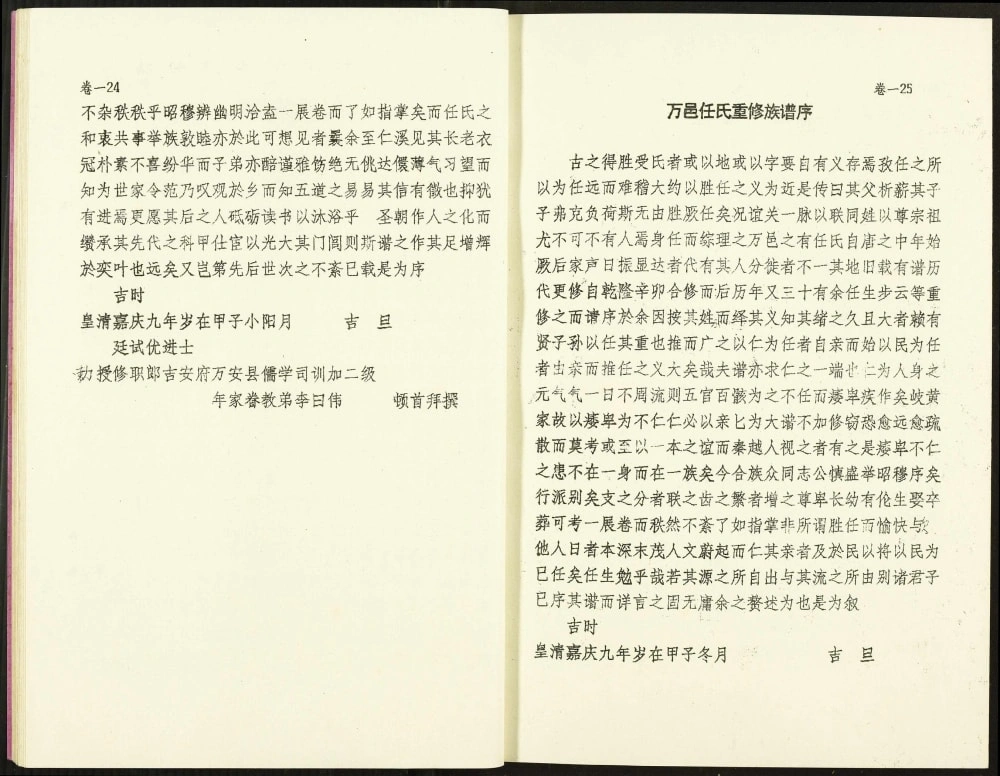 卷一24
不杂秩秩乎昭穆辨幽明洽盍一展卷而了如指掌矣而任氏之
和衷共事举族敦睦亦於此可想见者曩余至仁溪见其长老衣
冠朴素不喜纷华而子弟亦醅谨雅饬绝无佻达儇薄气习望而
知为世家令范乃叹观於乡而知五道之易易其信有徵也抑犹
有进焉更愿其后之人砥砺读书以沐浴乎 圣朝作人之化而
缵承其先代之科甲仕宦以光大其门闾则斯谱之作其足增辉
於奕叶也远矣又岂第先后世次之不紊已载是为序
吉时
皇清嘉庆九年岁在甲子小阳月 吉 旦
廷试优进士
勅授修职郎吉安府万安县儒学司训加二级
年家眷教弟李曰伟 顿首拜撰
卷一25
万邑任氏重修族谱序
古之得胜受氏者或以地或以字要自有义存焉孜任之所
以为任远而难稽大约以胜任之义为近是传曰其父析薪其子
子弗克负荷斯无由胜厥任矣况谊关一脉以联同姓以尊宗祖
尤不可不有人焉身任而综理之万邑之有任氏自唐之中年始
厥后家声日振显达者代有其人分徙者不一其地旧载有谱历
代更修自乾隆辛卯合修而后历年又三十有余任生步云等重
修之而请序於余因按其姓而绎其义知其绪之久且大者赖有
贤子孙以任其重也推而广之以仁为任者自亲而始以民为任
者由亲而推任之义大矣哉夫谱亦求仁之一端也仁为人身之
元气气一日不周流则五官百骸为之不任而痿卑疾作矣岐黄
家故以痿卑为不仁仁必以亲匕为大谱不加修窃恐愈远愈疏
散而莫考或至以一本之谊而秦越人视之者有之是痿卑不仁
之患不在一身而在一族矣今合族众同志公慎盛举昭穆序矣
行派别矣支之分者联之齿之繁者增之尊卑长幼有伦生娶卒
葬可考一展卷而秩然不紊了如指掌非所谓胜任而愉快与
他人日者本深末茂人文蔚起而仁其亲者及於民以将以民为
已任矣任生勉乎哉若其源之所自出与其流之所由别诸君子
已序其谱而详言之固无庸余之赘述为也是为叙
吉时
皇清嘉庆九年岁在甲子冬月 吉 旦